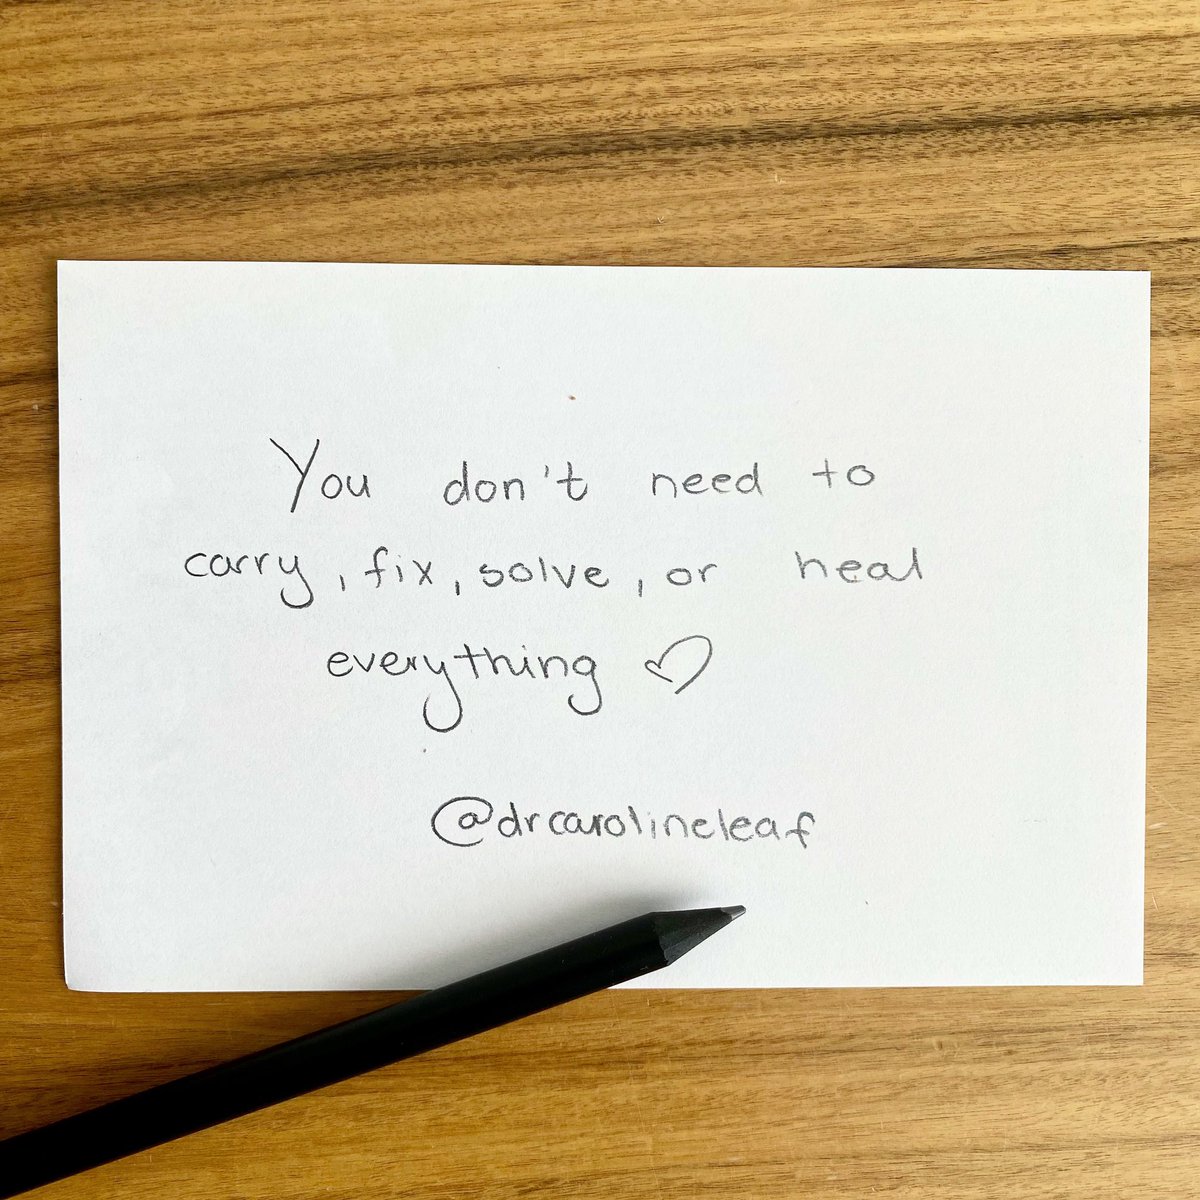 You don't need to
carry, fix, solve, or heal
everything ♡
@drcarolineleaf